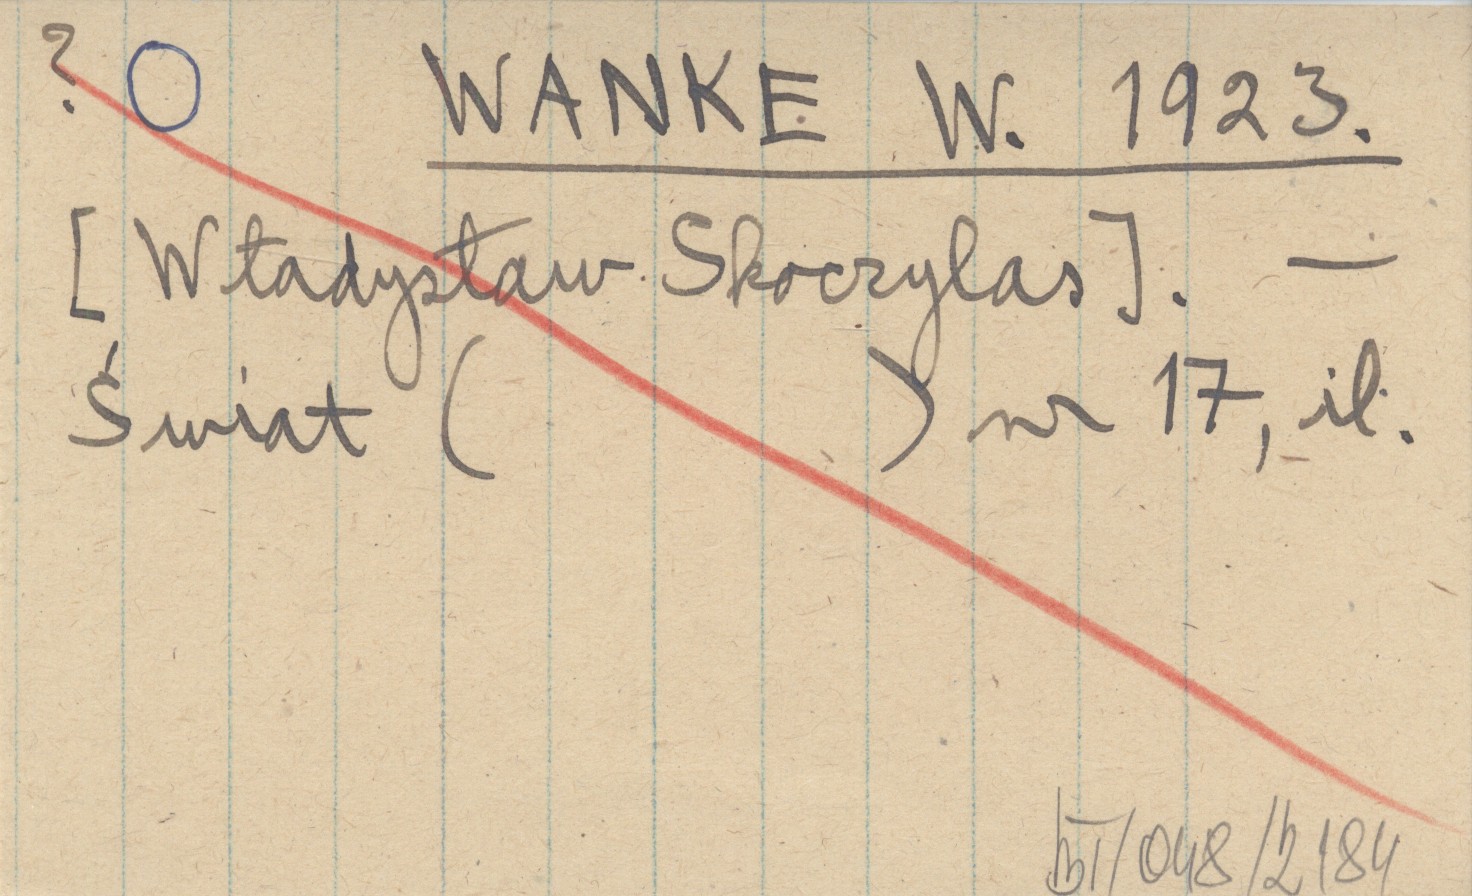 ? O WANKE W. 1923.
[Władysław Skoczylas]. —
Świat ( ) nr 17, il.
/048/2184